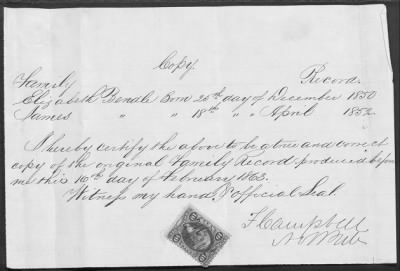 Copy
Family Record.
Elizabeth Bendle Born 26th day of December 1850
James " " 18th " " April 1852
I hereby certify the above to be a true and correct
copy of the original Family Record produced before
me this 16th day of February 1863.
Witness my hand & official Seal
F Campbell